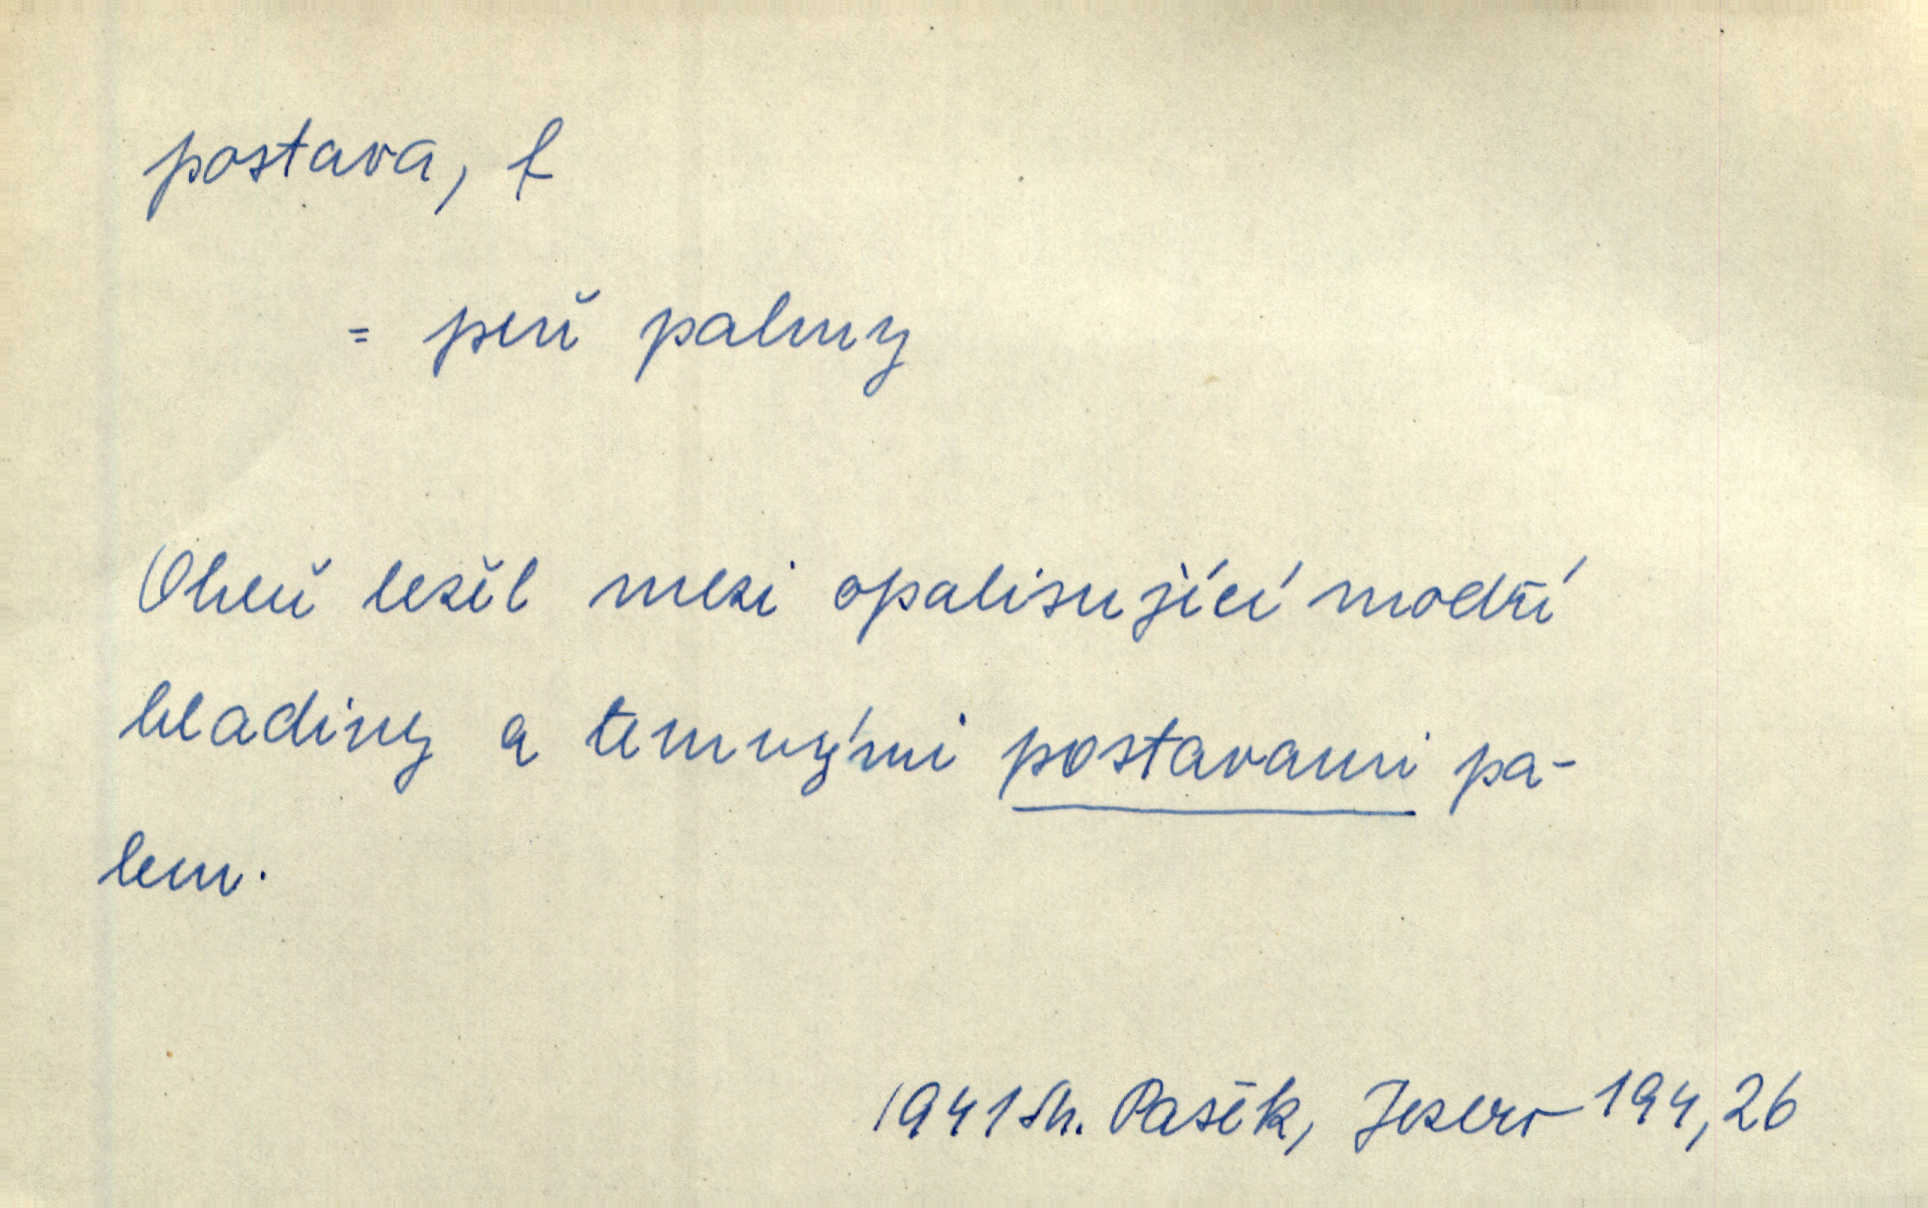 postava, f
= peň palmy
Oheň ležel mezi opalisující modří
hladiny a temnými postavami pa-
lem.
1941 Sh. Pašek, Jezero 194,26